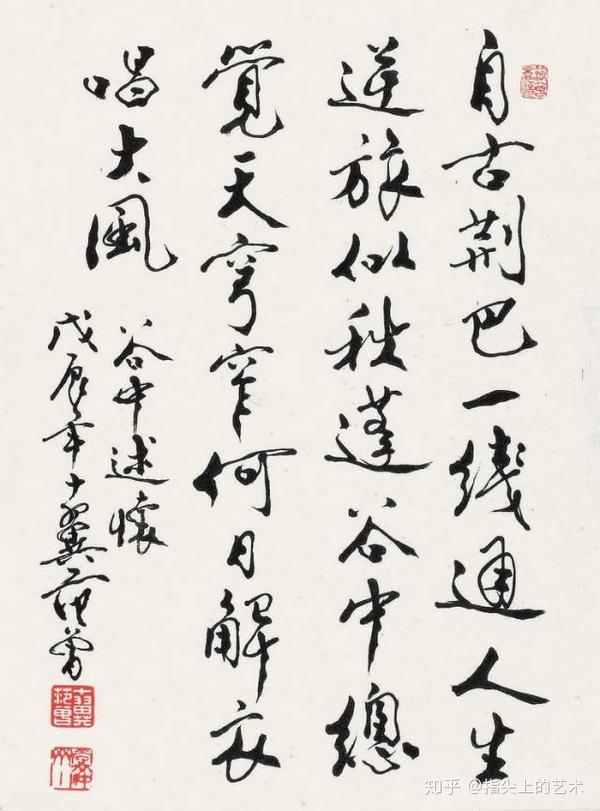 自古荆巴一线通人生
逆旅似秋蓬谷中總
覺天穹窄何日解衣
唱大風
谷中述懷
戊辰年十翼范曾
知乎 @指尖上的艺术